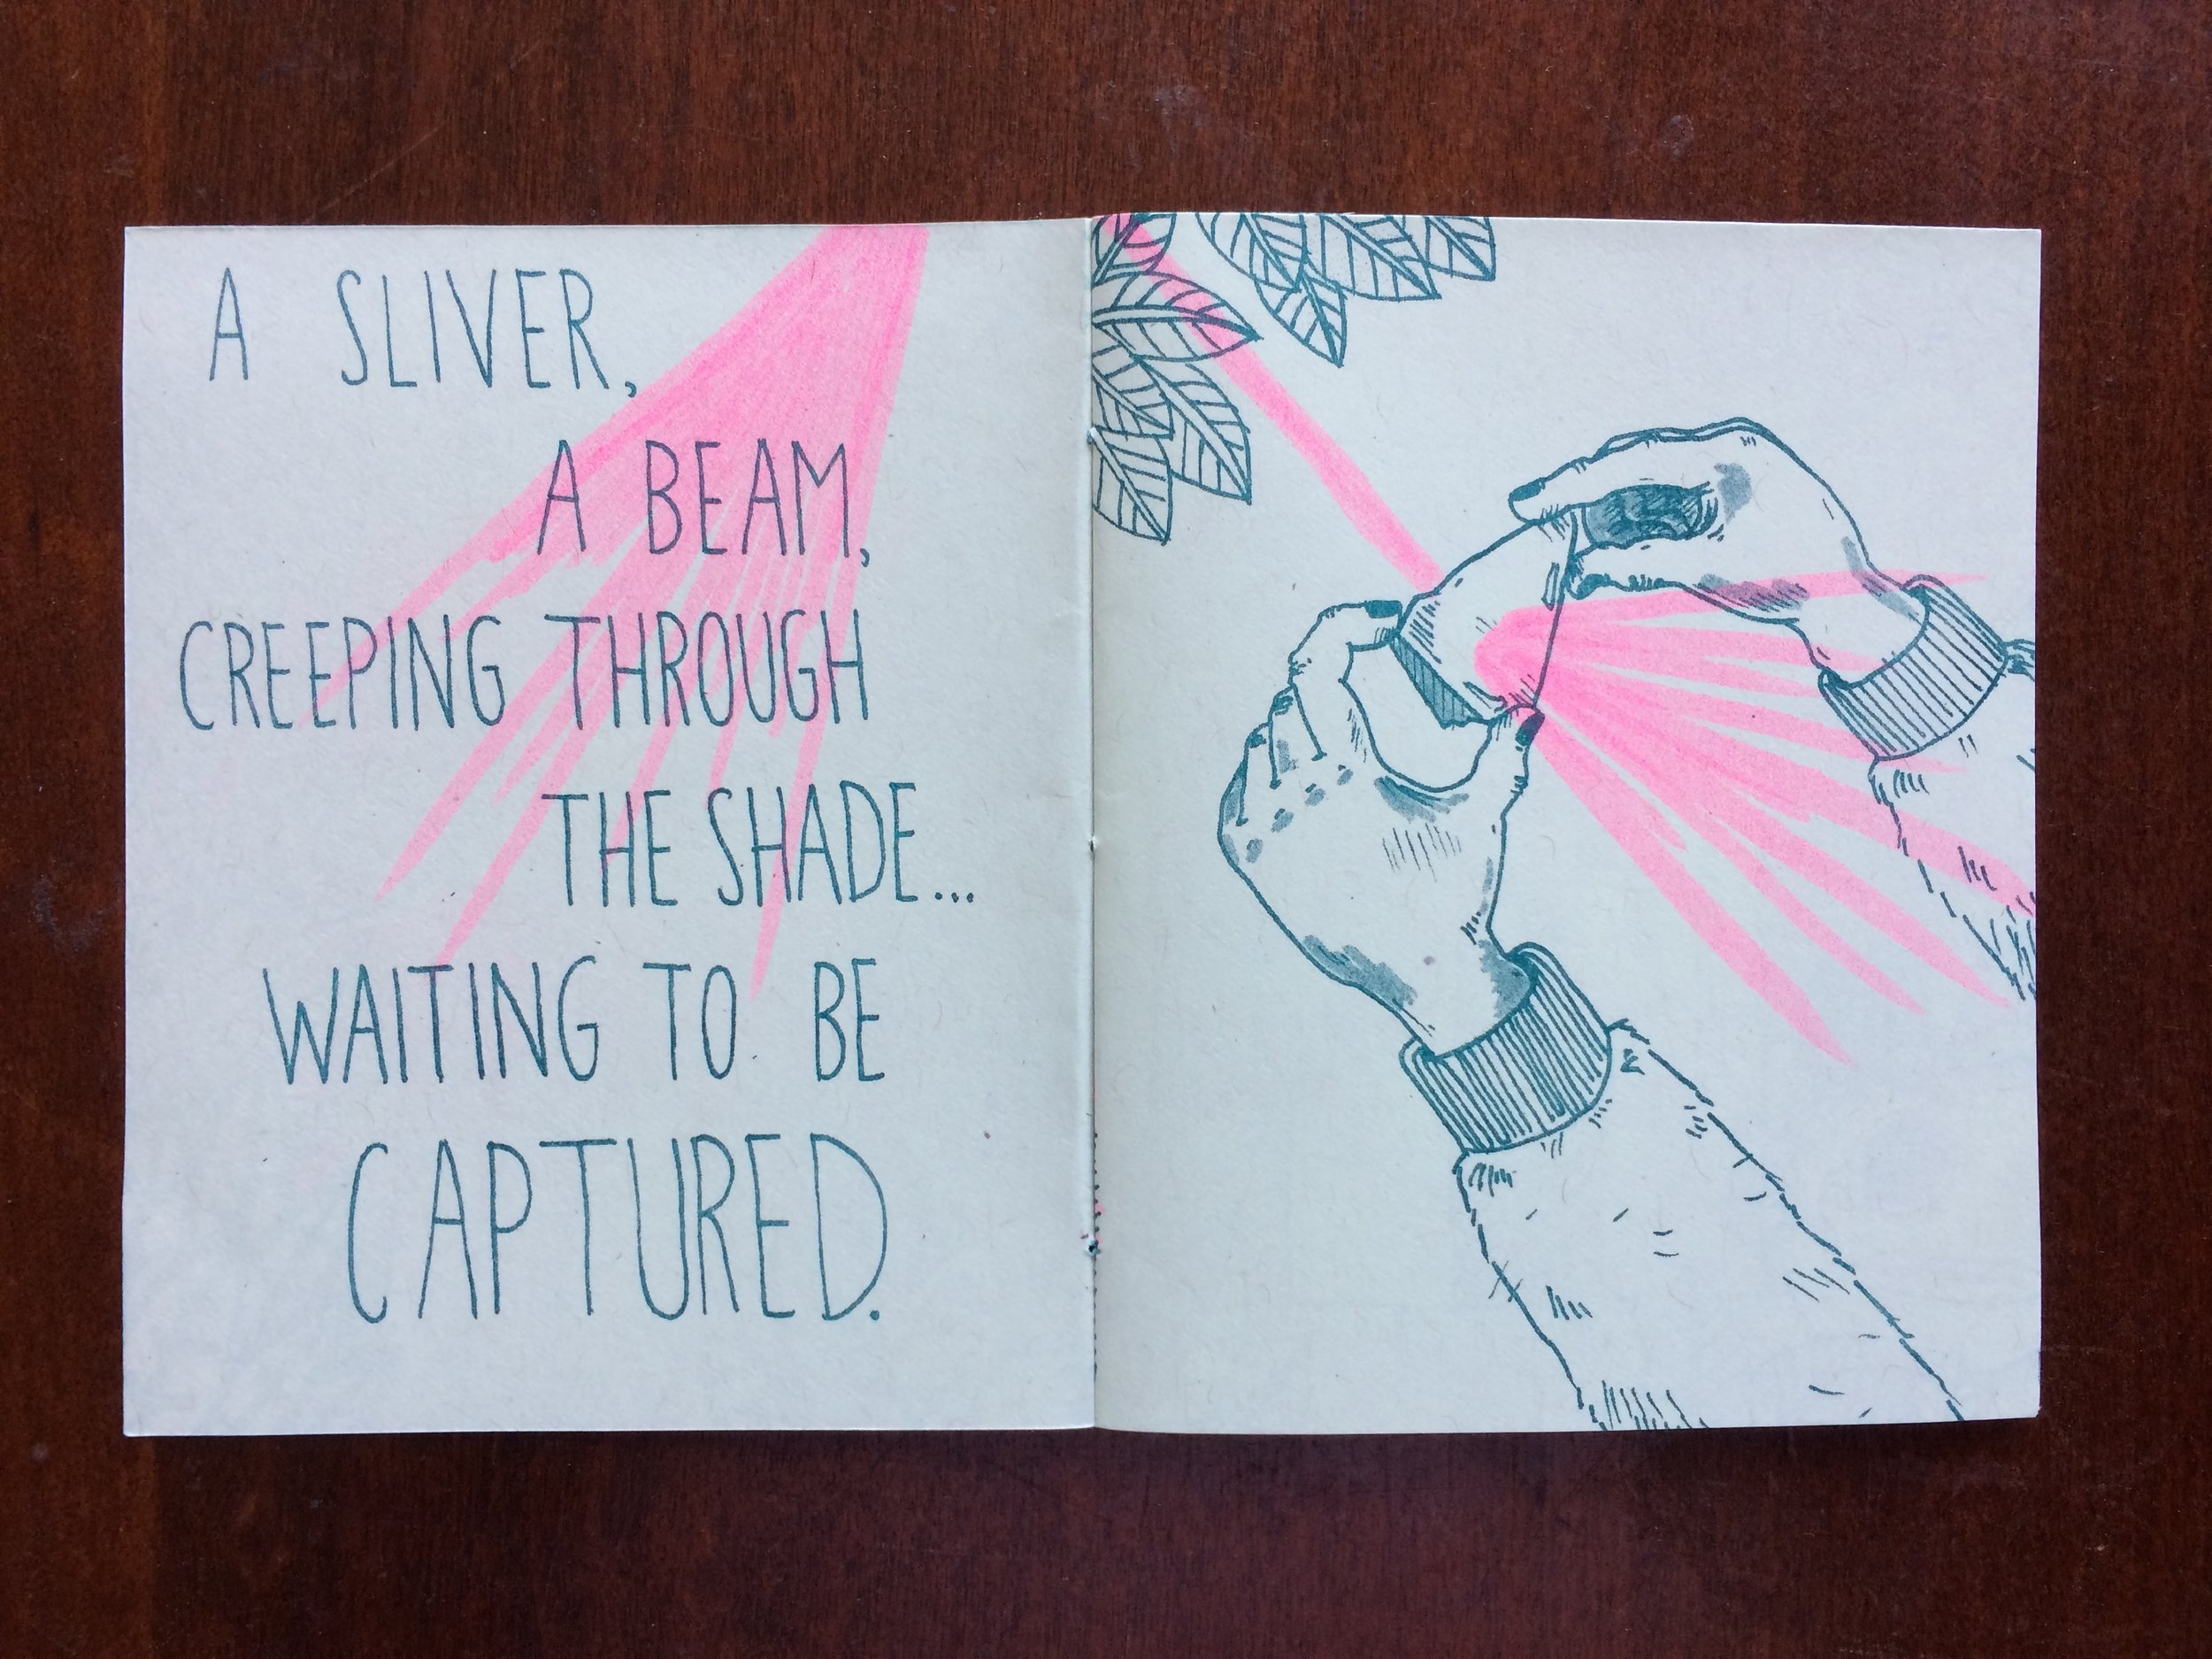 A SLIVER,
A BEAM,
CREEPING THROUGH
THE SHADE...
WAITING TO BE
CAPTURED.